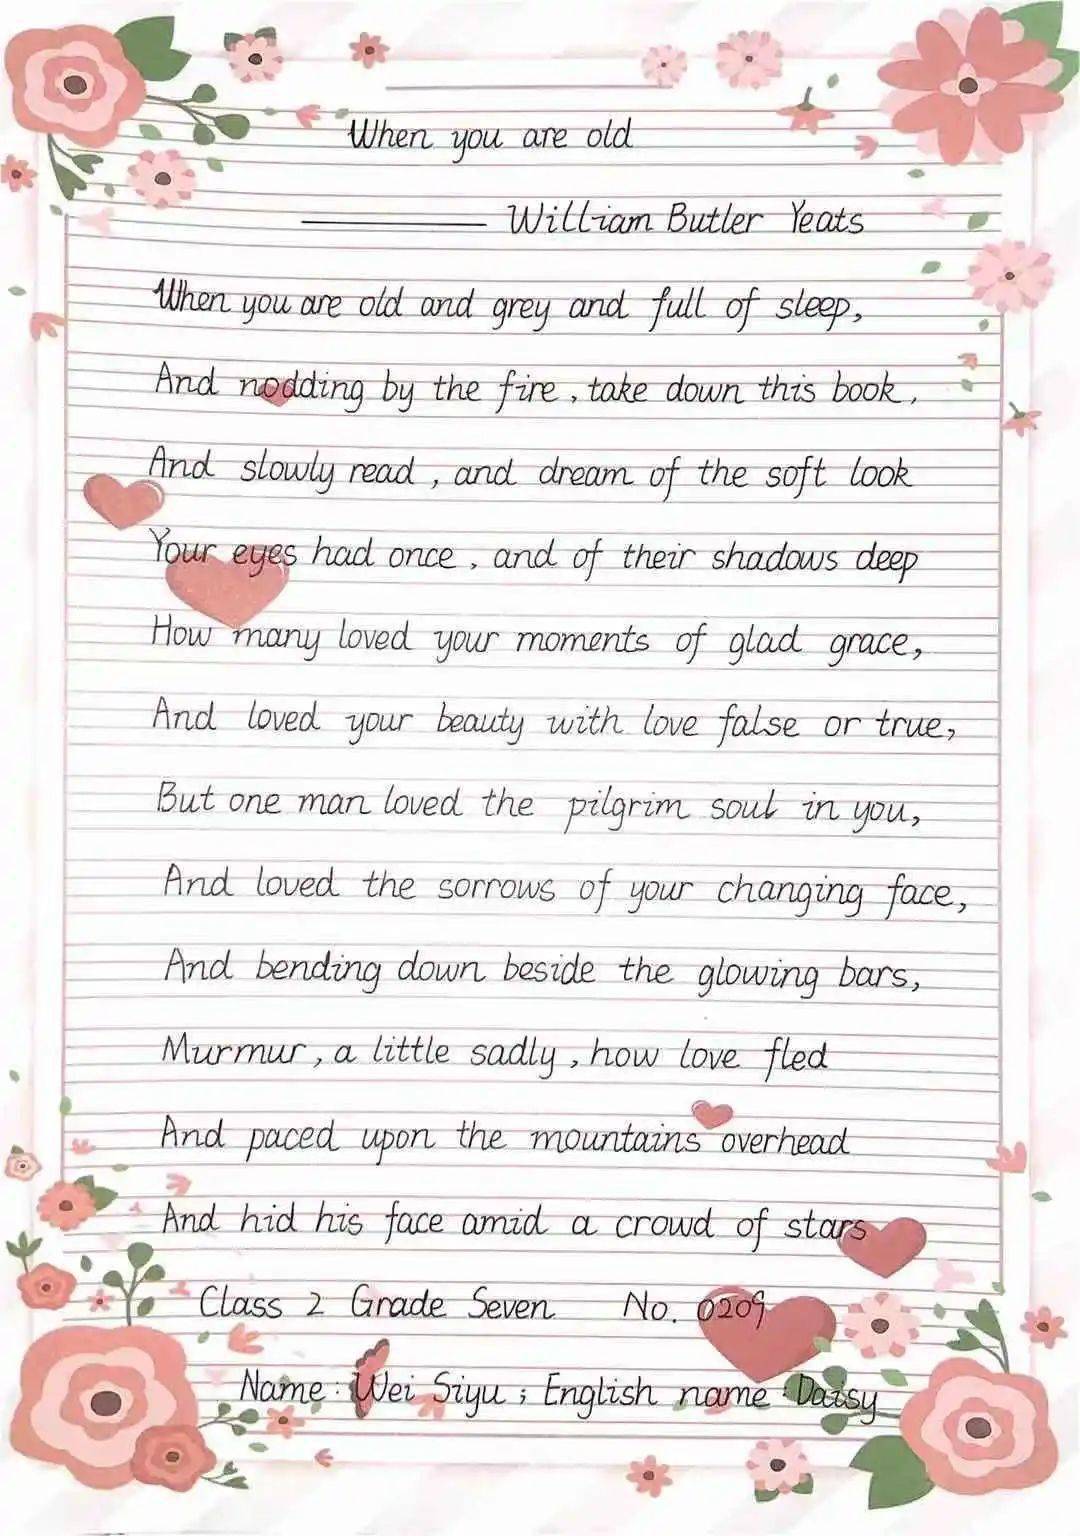 When you are old
——— William Butler Yeats
When you are old and grey and full of sleep,
And nodding by the fire, take down this book,
And slowly read, and dream of the soft look
Your eyes had once, and of their shadows deep
How many loved your moments of glad grace,
And loved your beauty with love false or true,
But one man loved the pilgrim soul in you,
And loved the sorrows of your changing face,
And bending down beside the glowing bars,
Murmur, a little sadly, how love fled
And paced upon the mountains overhead
And hid his face amid a crowd of stars
Class 2 Grade Seven No. 0209
Name: Wei Siyu; English name: Daisy